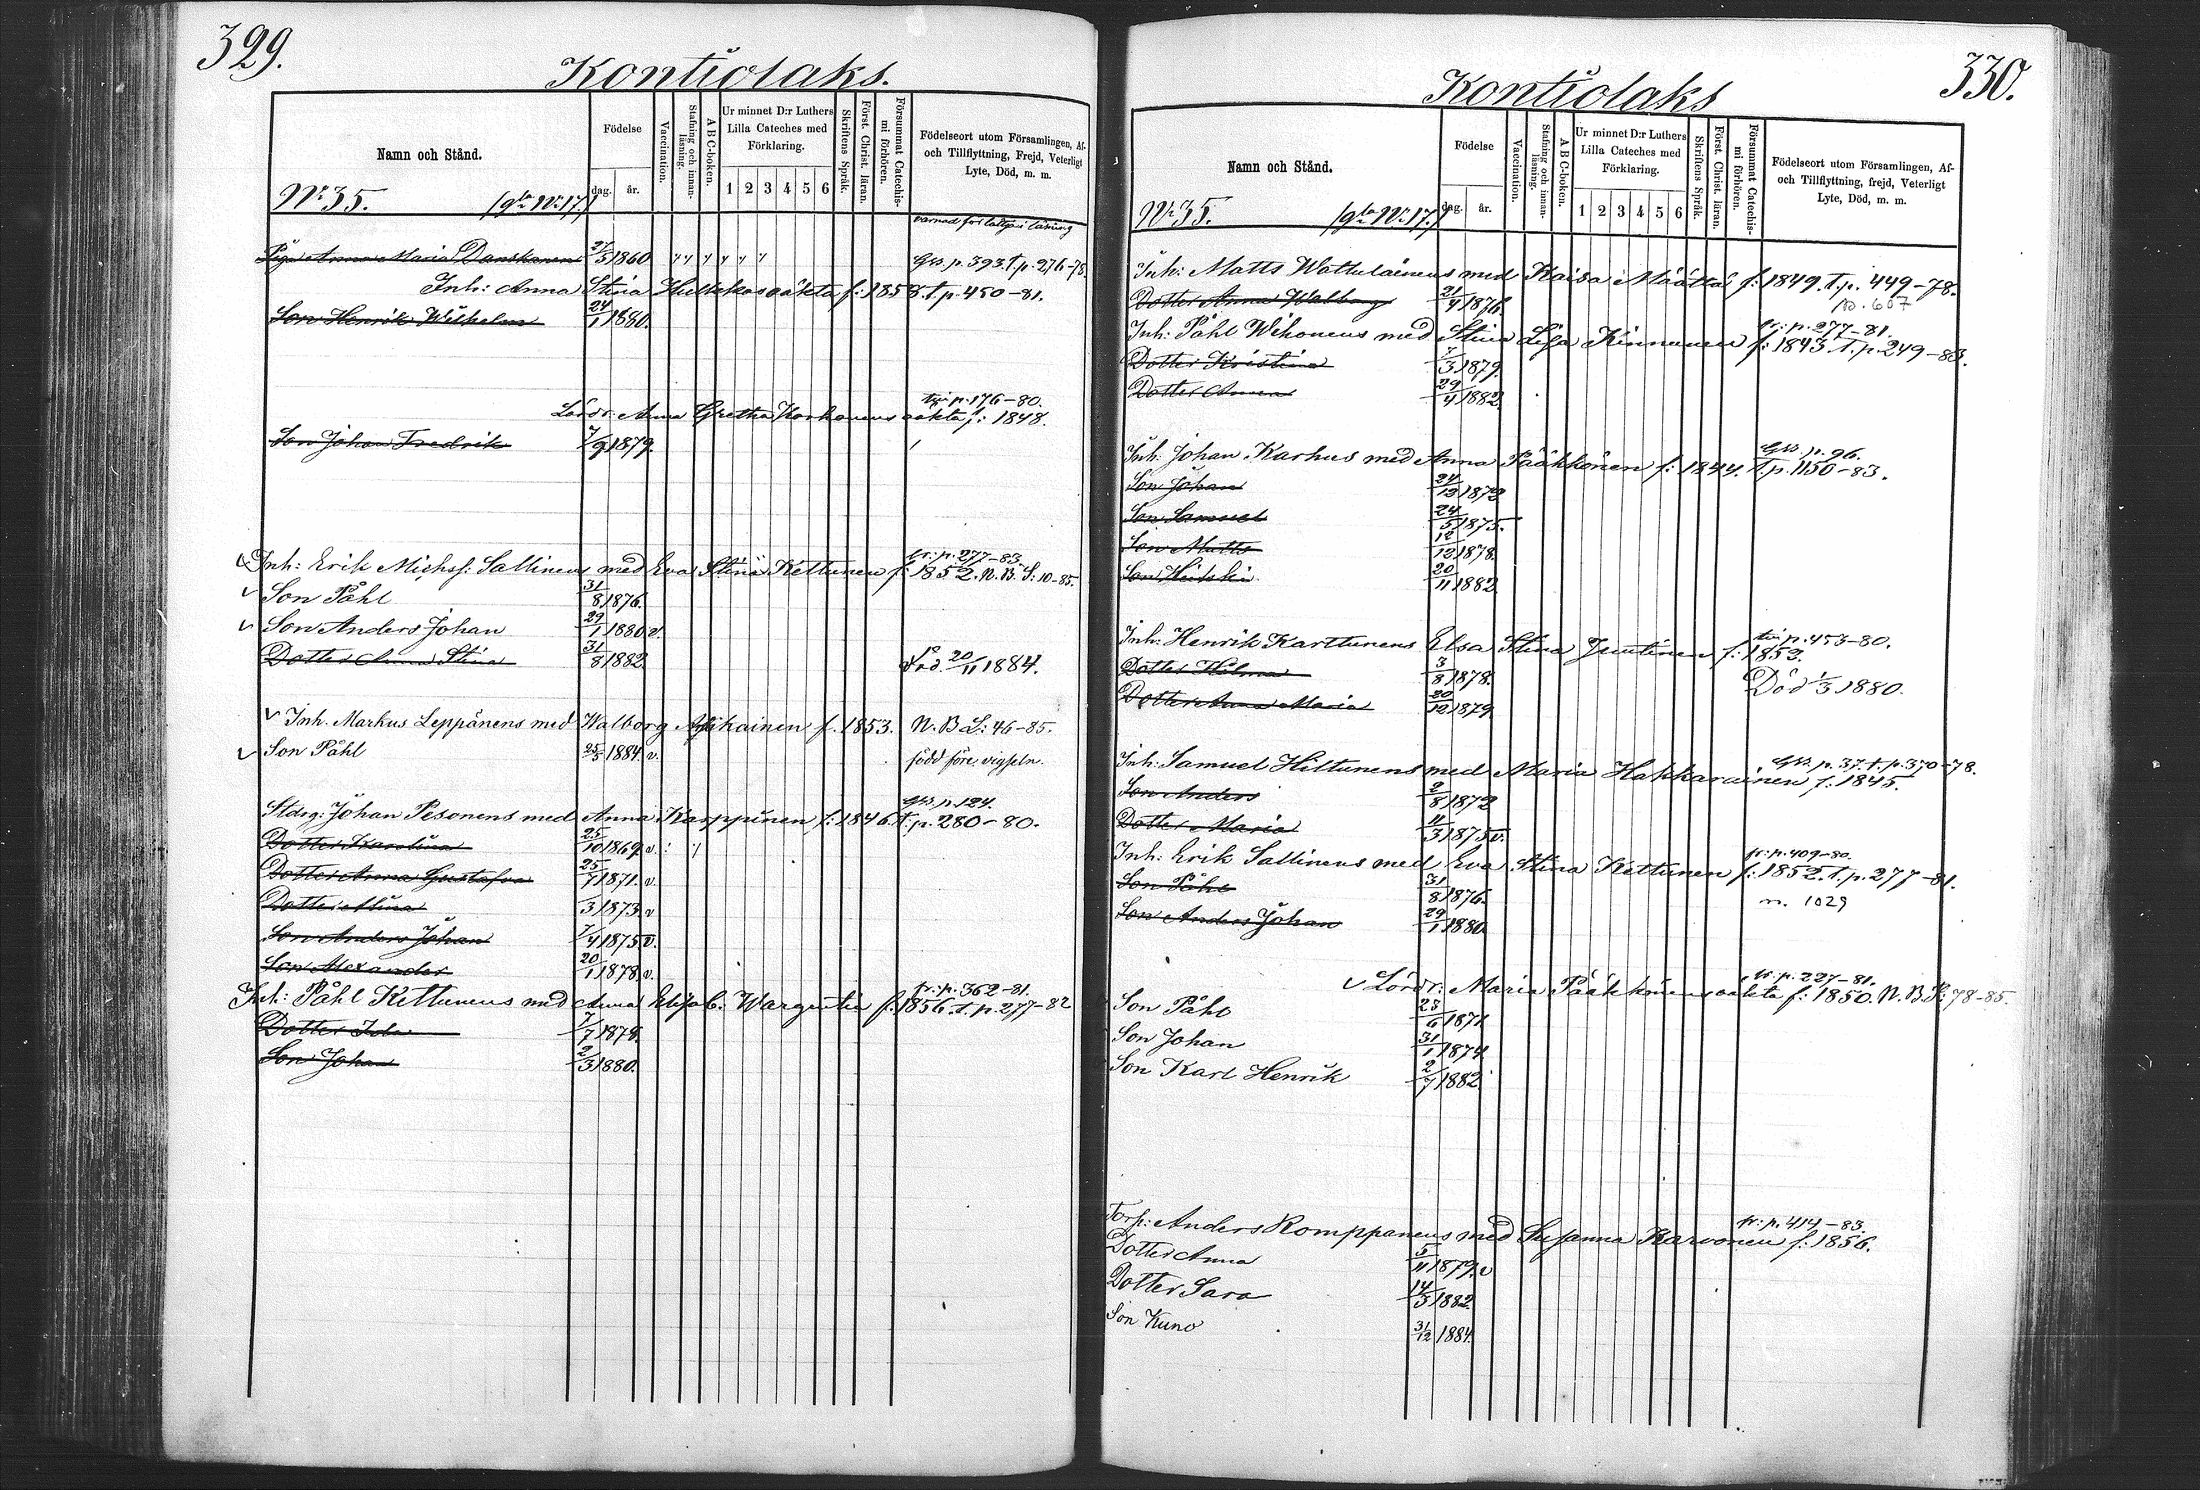 329.
Kontiolaks.
Namn och Stånd.
Födelse
dag.
år.
Vaccination.
Stafning och innanläsning.
A B C-boken.
Ur minnet D:r Luthers Lilla Cateches med Förklaring.
1 2 3 4 5 6
Skriftens Språk.
Först. Christ. läran.
Försummat Catechismi förhören.
Födelseort utom Församlingen, Af- och Tillflyttning, Frejd, Veterligt Lyte, Död, m. m.
N:o 35. N:o 17.
Piga Anna Maria Danskanen 21/5 1860 p. 393 t. p. 276-78.
Inh: Anna Stina Hulkkos oäkta f: 1858. t. p. 450-81.
Son Henrik Wilhelm 24/1 1880.
p. 176-80.
Lösdr. Anna Gretha Korhonens oäkta f: 1848.
Son Johan Fredrik 7/9 1879.
fr: p. 277-83.
Inh: Erik Michsf: Sallinens med Eva Stina Kettunen f: 1852. N. B. S: 10-85.
Son Påhl 31/8 1876.
Son Anders Johan 29/1 1880 v.
Dotter Anna Stina 31/8 1882 Död 20/11 1884.
Inh. Markus Leppänens med Walborg f. 1853. N. B. L: 46-85.
Son Påhl 25/5 1884. v. född före vigseln.
p. 124.
Johan Pesonens med Anna Karppinen f: 1846. t. p. 280-80.
Dotter Karolina 25/10 1869 v.
Dotter Anna Gustafva 25/7 1871. v.
Dotter Stina 3 1873. v
Son Anders Johan 7/4 1875 v.
Son Alexander 20/1 1878 v.
fr: p. 362-81.
Inh: Påhl Kettunens med Anna Elisab. Wargentin f. 1856. t. p. 277-82
Dotter Ida 7/7 1878.
Son Johan 2/3 1880.
330.
Kontiolaks
Namn och Stånd.
Födelse
dag.
år.
Vaccination.
Stafning och innanläsning.
A B C-boken.
Ur minnet D:r Luthers Lilla Cateches med Förklaring.
1 2 3 4 5 6
Skriftens Språk.
Först. Christ. läran.
Försummat Catechismi förhören.
Födelseort utom Församlingen, Af- och Tillflyttning, frejd, Veterligt Lyte, Död, m. m.
N:o 35. N:o 17.
Inh: Matts Wattulainens med Kaisa Määttä f: 1849. t. p. 449-78.
Dotter Anna Walborg 21/4 1876.
fr: p. 277-81.
Inh: Påhl Wihonens med Stina Lisa Kinnunen f: 1843 t. p. 249-83.
Dotter Kristina 7/3 1879.
Dotter Anna 29/4 1882.
p. 96.
Inh: Johan Karhus med Anna Pääkkönen f: 1844. t. p. 1150-83.
Son Johan 24/12 1872
Son Samuel 24/5 1875.
Son Matts 12/12 1878.
Son Heikki 20/11 1882.
p. 453-80.
Inh: Henrik Karttunens Elsa Stina Juutinen f: 1852.
Dotter Hilma 3/8 1878. Död 1/3 1880.
Dotter Anna Maria 20/12 1879.
p. 37. t. p. 370-78.
Inh: Samuel Hiltunens med Maria Hakkarainen f. 1845.
Son Anders 2/8 1872
Dotter Maria 11/3 1875 v.
fr: p. 409-80.
Inh: Erik Sallinens med Eva Stina Kettunen f: 1852. t. p. 277-81.
Son Påhl 31/8 1876. n. 1029
Son Anders Johan 29/1 1880
fr: p. 227-81.
Lösdr: Maria Pääkkönens oäkta f: 1850. N. B. P: 78-85.
Son Påhl 28/6 1871
Son Johan 31/1 1874
Son Karl Henrik 2/7 1882
fr: p. 414-83.
Torp: Anders Romppanens med Susanna Karvonen f: 1856.
Dotter Anna 5/11 1879. v
Dotter Sara 14/3 1882.
Son Kuno 31/12 1884.